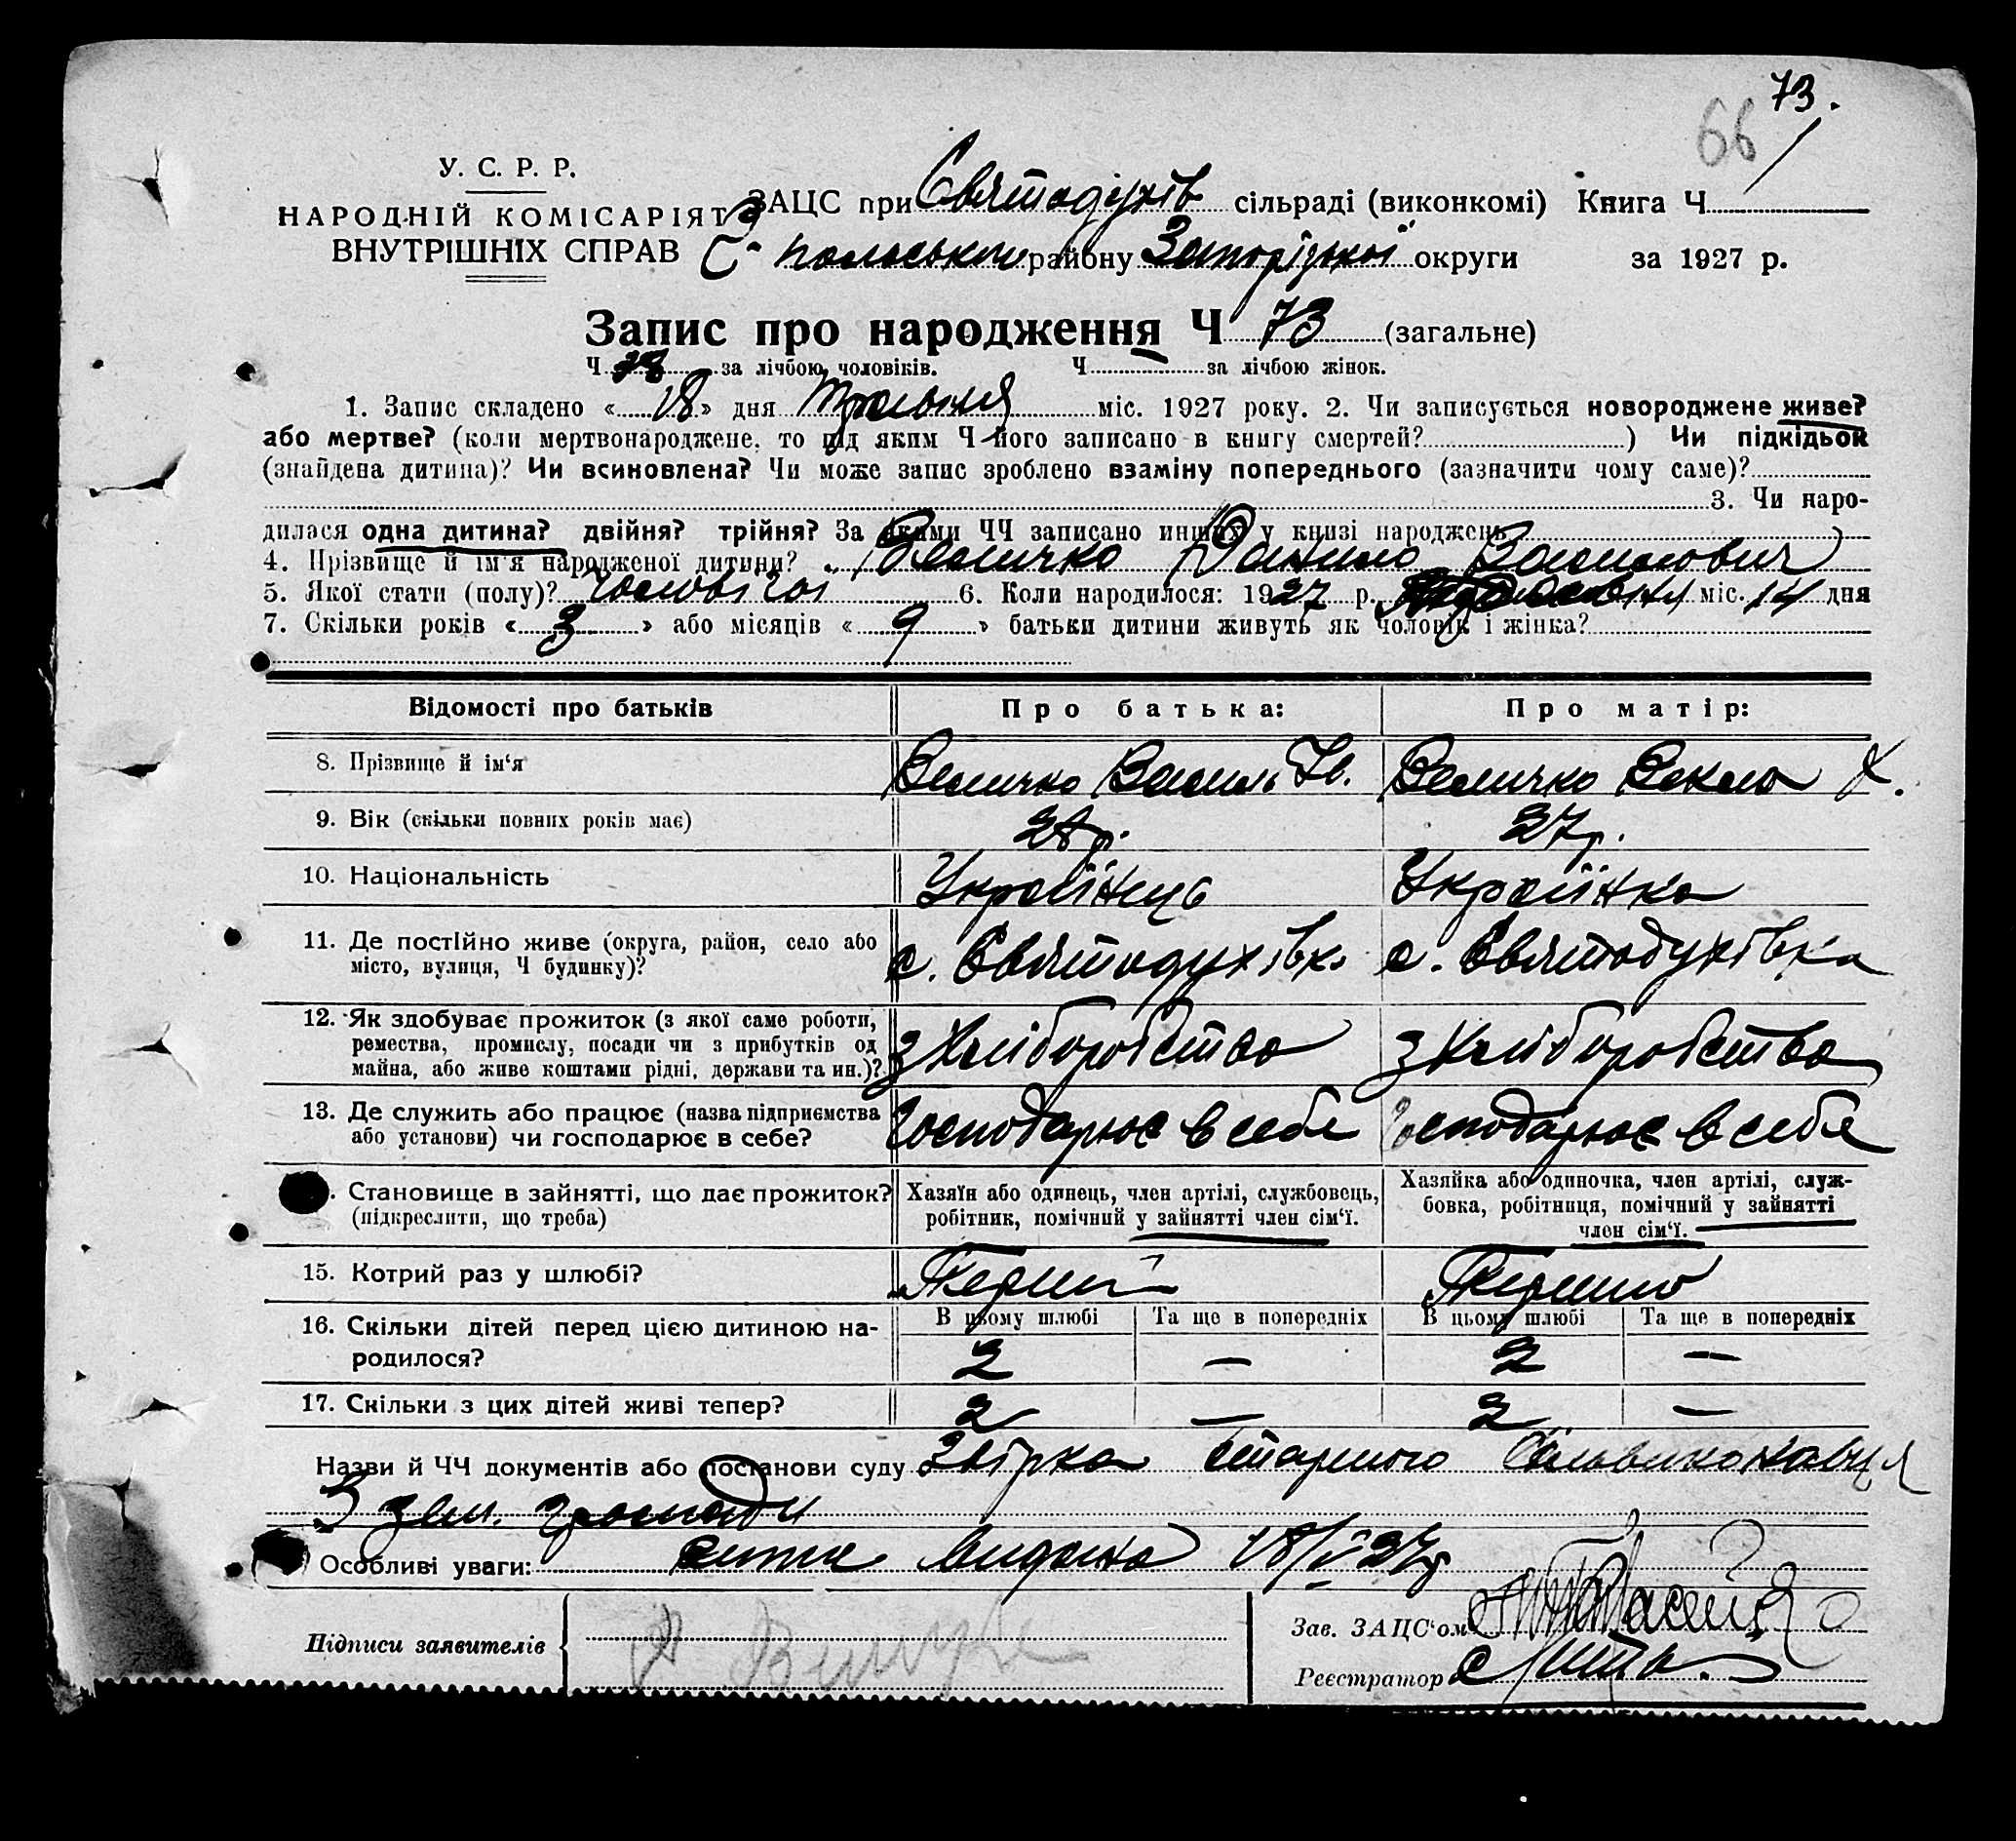 73.
66
У. С. Р. Р.
НАРОДНІЙ КОМІСАРІЯТ
ВНУТРІШНІХ СПРАВ
ЗАЦС при Святодухів сільраді (виконкомі) Книга Ч.
району Запорізької округи за 1927 р.
Запис про народження Ч 73 (загальне)
Ч за лічбою чоловіків. Ч за лічбою жінок.
1. Запис складено « 18 » дня Травня міс. 1927 року. 2. Чи записується новороджене живе?
або мертве? (коли мертвонароджене, то під яким Ч його записано в книгу смертей? ) Чи підкідьок
(знайдена дитина)? Чи всиновлена? Чи може запис зроблено взаміну попереднього (зазначити чому саме)?
3. Чи наро-
дилася одна дитина? двійня? трійня? За якими ЧЧ записано инших у книзі народжень
4. Прізвище й ім'я народженої дитини? Величко Данило Васильович
5. Якої стати (полу)? чоловічої 6. Коли народилося: 1927 р. міс. 14 дня
7. Скільки років « 3 » або місяців « 9 » батьки дитини живуть як чоловік і жінка?
Відомості про батьків Про батька: Про матір:
8. Прізвище й ім'я Величко Василь Ів. Величко Векла Х.
9. Вік (скільки повних років має) 28 р. 27 р.
10. Національність Українець Українка
11. Де постійно живе (округа, район, село або
місто, вулиця, Ч будинку)? с. Святодухівк. с. Святодухівка
12. Як здобуває прожиток (з якої саме роботи,
ремества, промислу, посади чи з прибутків од
майна, або живе коштами рідні, держави та ин.)? з Хліборобства з Хліборобства
13. Де служить або працює (назва підприємства
або установи) чи господарює в себе? Господарює в себе Господарює в себе
. Становище в зайнятті, що дає прожиток?
(підкреслити, що треба)
Хазяїн або одинець, член артілі, службовець,
робітник, помічний у зайнятті член сім'ї.
Хазяйка або одиночка, член артілі, служ-
бовка, робітниця, помічний у зайнятті
член сім'ї.
15. Котрий раз у шлюбі? Перший Першою
16. Скільки дітей перед цією дитиною на-
родилося?
В цьому шлюбі Та ще в попередніх В цьому шлюбі Та ще в попередніх
2 — 2 —
17. Скільки з цих дітей живі тепер? 2 — 2 —
Назви й ЧЧ документів або постанови суду Звірка Старшого Сільвиконавця
3 зем. громади
Особливі уваги: видана 18/V 27р
Підписи заявителів
Зав. ЗАЦС'ом
Реєстратор